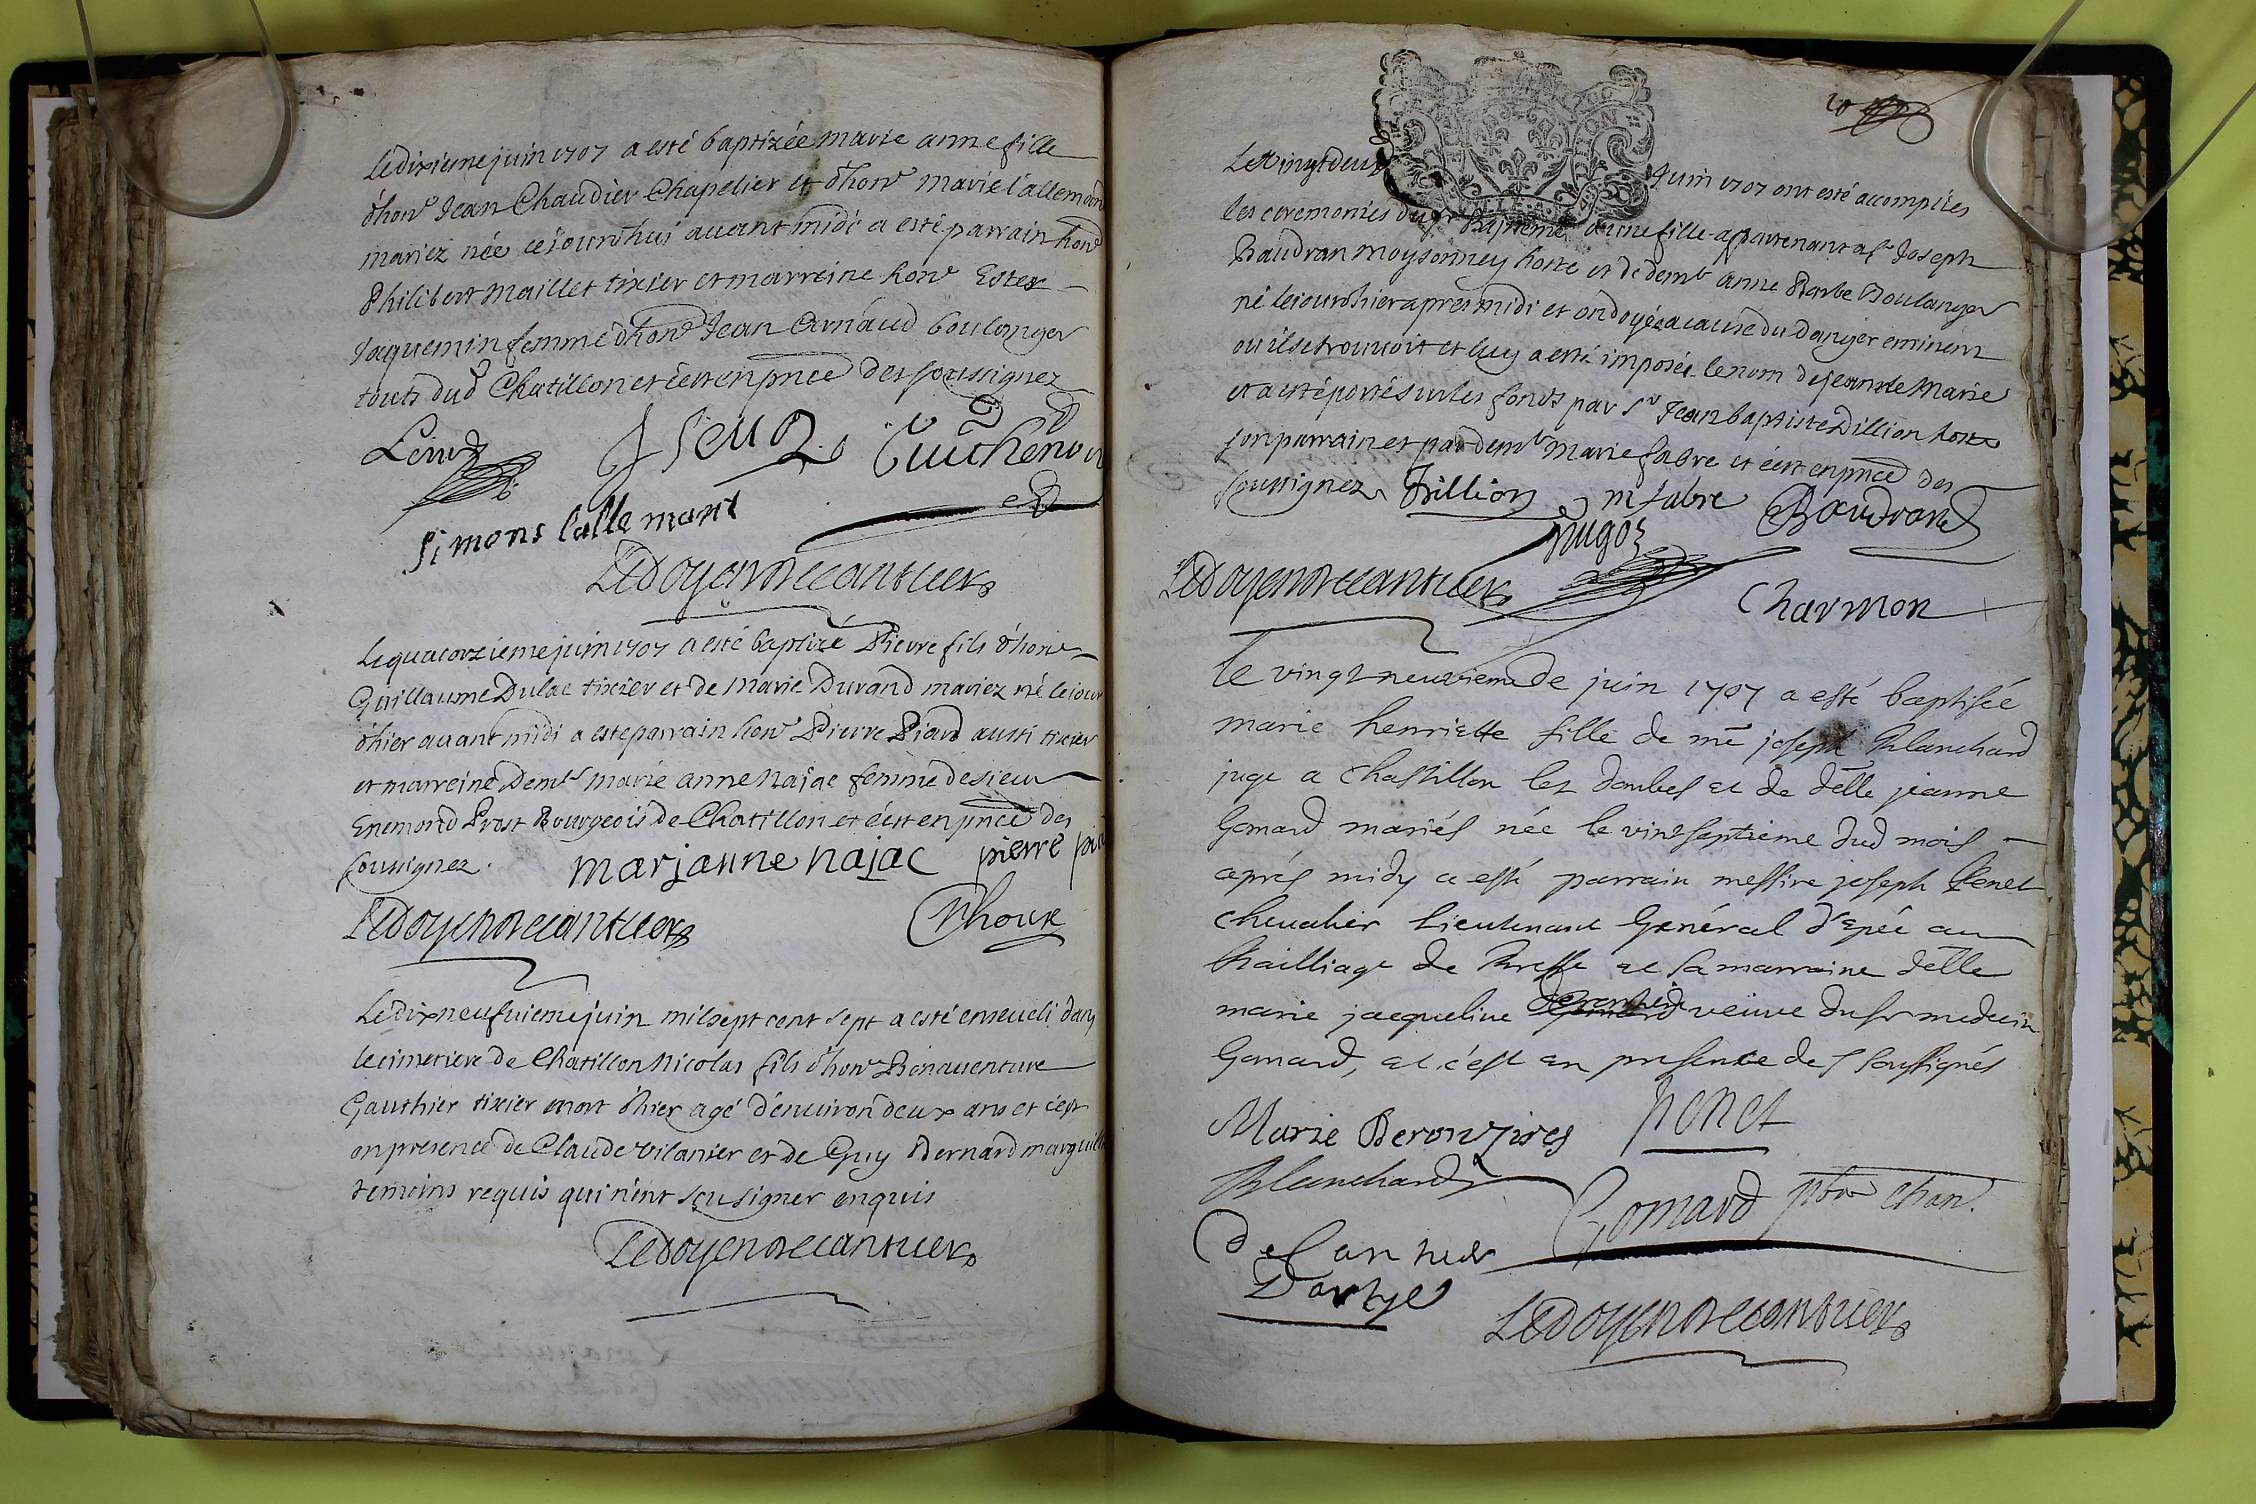 Le dixieme juin 1707 a esté baptizée marie anne fille
d'hon^e Jean Chaudier Chapelier et d'hon^e marie l'allemand
mariez née ce jourd'hui avant midi a esté parrain hon^e
Philibert Maillet tixier et marreine hon^e Ester
Jaquemin femme d'hon^e Jean Arnaud boulanger
touts dud Chatillon et c'est en pnce des soussignez
Guichenon
simons lallemant
Ledoyen Decantiers
Le quatorzieme juin 1707 a esté baptizé Pierre fils d'hon^e
Guillaume Dulac tixier et de Marie Durand mariez né le jour
d'hier avant midi a esté parrain hon^e Pierre Piard aussi tixier
et marreine Dem^le marie anne Najac femme de sieur
Enemond Prost Bourgeois de Chatillon et c'est en pnce des
soussignez. marjanne najac pierre
Ledoyen Decantiers
Le dix neufvieme juin mil sept cent sept a esté enseveli dans
le cimetiere de Chatillon Nicolas fils d'hon^e Bonaventure
Gauthier tixier mort d'hier agé d'environ deux ans et c'est
en presence de Claude vilanier et de Guy Bernard
temoins requis qui n'ont sçu signer enquis
Ledoyen Decantiers
Le vingt deux juin 1707 ont esté accomplies
les ceremonies du st Bapteme d'une fille appartenant a s^r Joseph
Baudran Moysonney hoste et de dem^le anne Barbe Boulanger
né le jour d'hier apres midi et ondoyée a cause du danger eminent
ou il se trouvoit et luy a esté imposée le nom de jeanne Marie
et a esté portée sur les fonds par s^r Jean baptiste Dillion hoste
son parrain et par dem^le Marie fabre et c'est en pnce des
soussignez Dillion m fabre Baudrand
Ledoyen Decantiers Charmon
le vingt neuvieme de juin 1707 a esté baptisée
marie henriette fille de me joseph Blanchard
juge a chastillon les dombes et de delle jeanne
Gonard mariés née le vint septieme dud mois
aprés midy a esté parrain messire joseph Penet
chevalier lieutenant Général d'epée au
bailliage de Bresse et la marraine delle
marie jacqueline veuve du sr medecin
Gonard, et c'est en presence des soussignés
Penet
Blanchard Gonard pbre chan.
Ledoyen Decantiers